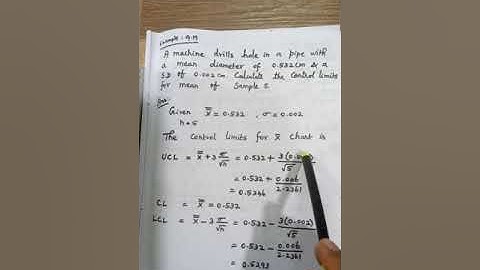 Example : 9.19
A machine drills hole in a pipe with
a mean diameter of 0.532 cm & a
S.D of 0.002 cm. Calculate the control limits
for mean of Sample 5.
Ans:
Given X̿ = 0.532 , σ = 0.002
n = 5
The control limits for x̄ chart is
UCL = X̿ + 3 σ/√n = 0.532 + 3(0.002)/√5
= 0.532 + 0.006/2.2361
= 0.5346
CL = X̿ = 0.532
LCL = X̿ - 3 σ/√n = 0.532 - 3(0.002)/√5
= 0.532 - 0.006/2.2361
= 0.5293